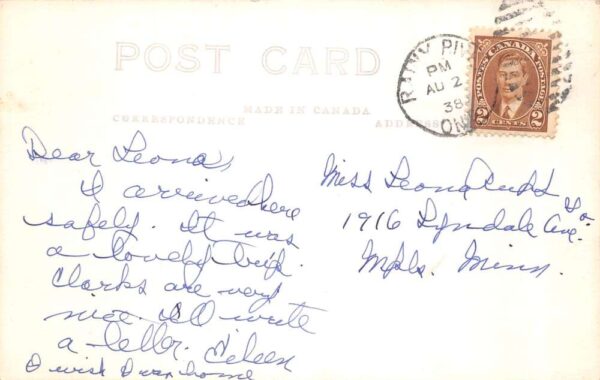 POST CARD
MADE IN CANADA
CORRESPONDENCE
ADDRESS
RAINY
PM
AU 2
38
ONT
POSTES CANADA POSTAGE
2 CENTS 2
Dear Leona,
I arrived here
safely. It was
a lovely trip.
Clarks are very
nice. I'll write
a letter. Eileen
I wish I was home
Miss Leona
1916 Lyndale Ave. So
Mpls. Minn.